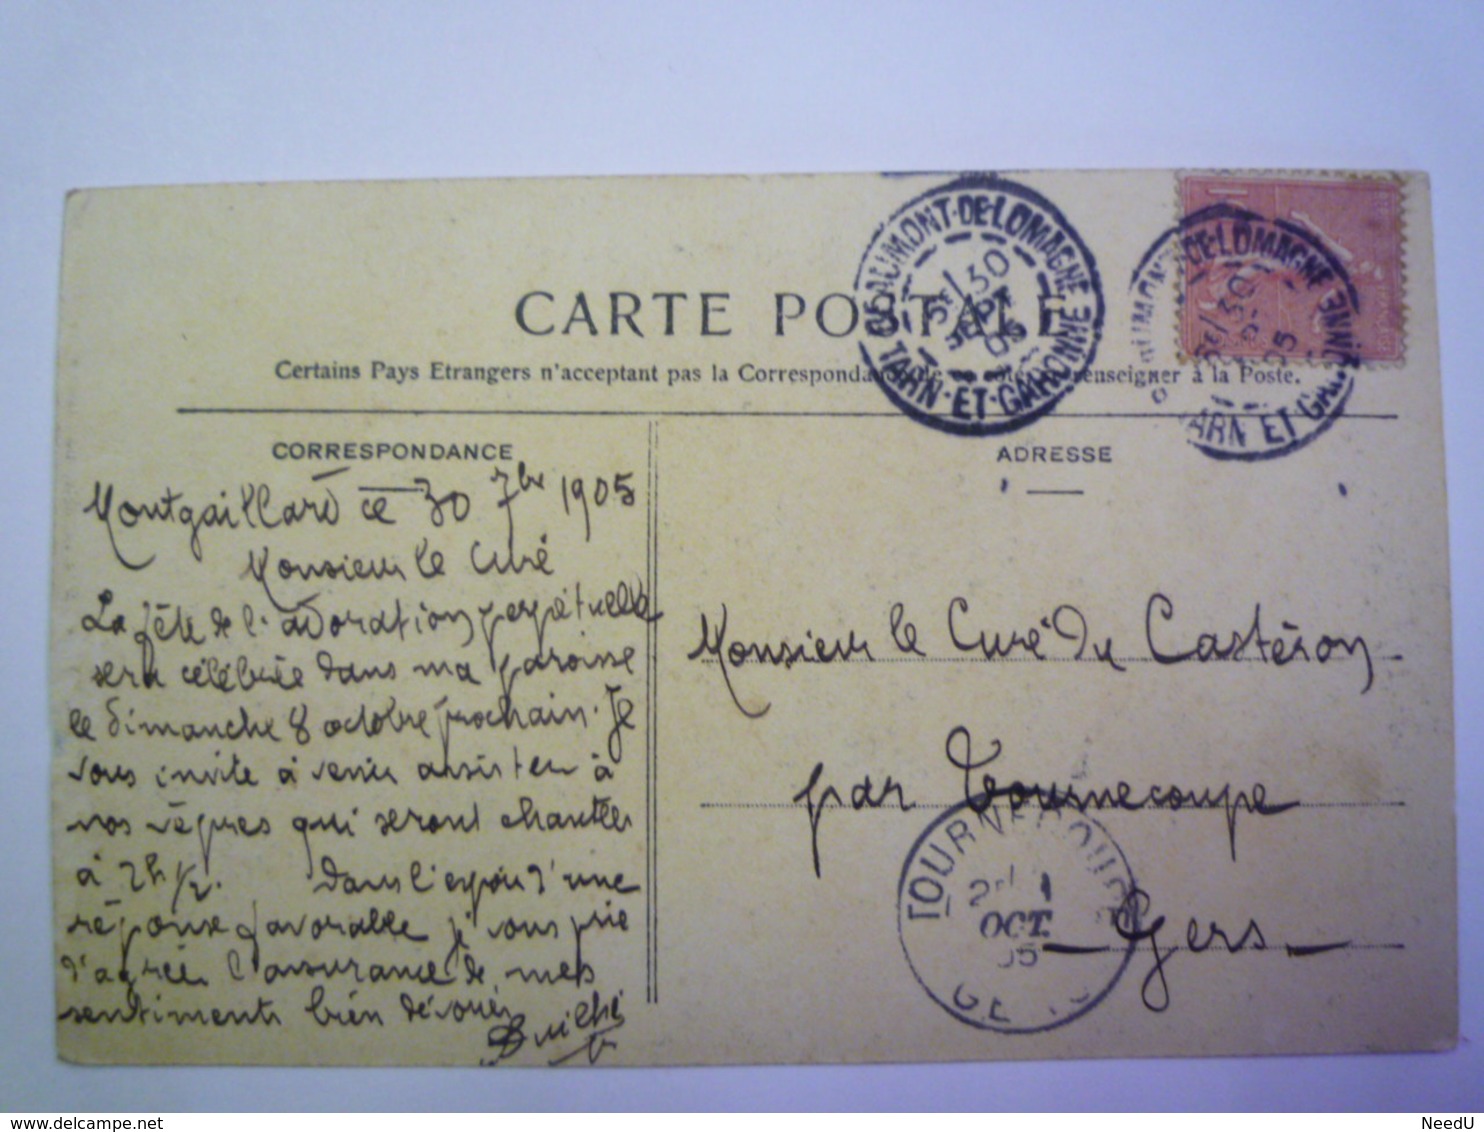 CARTE POSTALE
Certains Pays Etrangers n'acceptant pas la Correspondance renseigner à la Poste.
BEAUMONT-DE-LOMAGNE
30
SEPT
05
TARN-ET-GARONNE
DE-LOMAGNE
30
05
TARN ET GARONNE
CORRESPONDANCE
Montgaillard ce 30 7bre 1905
Monsieur le Curé
La fête de l'adoration perpétuelle
sera célébrée dans ma paroisse
le dimanche 8 octobre prochain. Je
vous invite à venir assister à
nos vêpres qui seront chantées
à 2h 1/2. Dans l'espoir d'une
réponse favorable je vous prie
d'agréer l'assurance de mes
sentiments bien dévoués
ADRESSE
Monsieur le Curé du Castéron
par Tournecoupe
Gers
TOURNECOUPE
OCT.
05
GERS
www.delcampe.net
NeedU